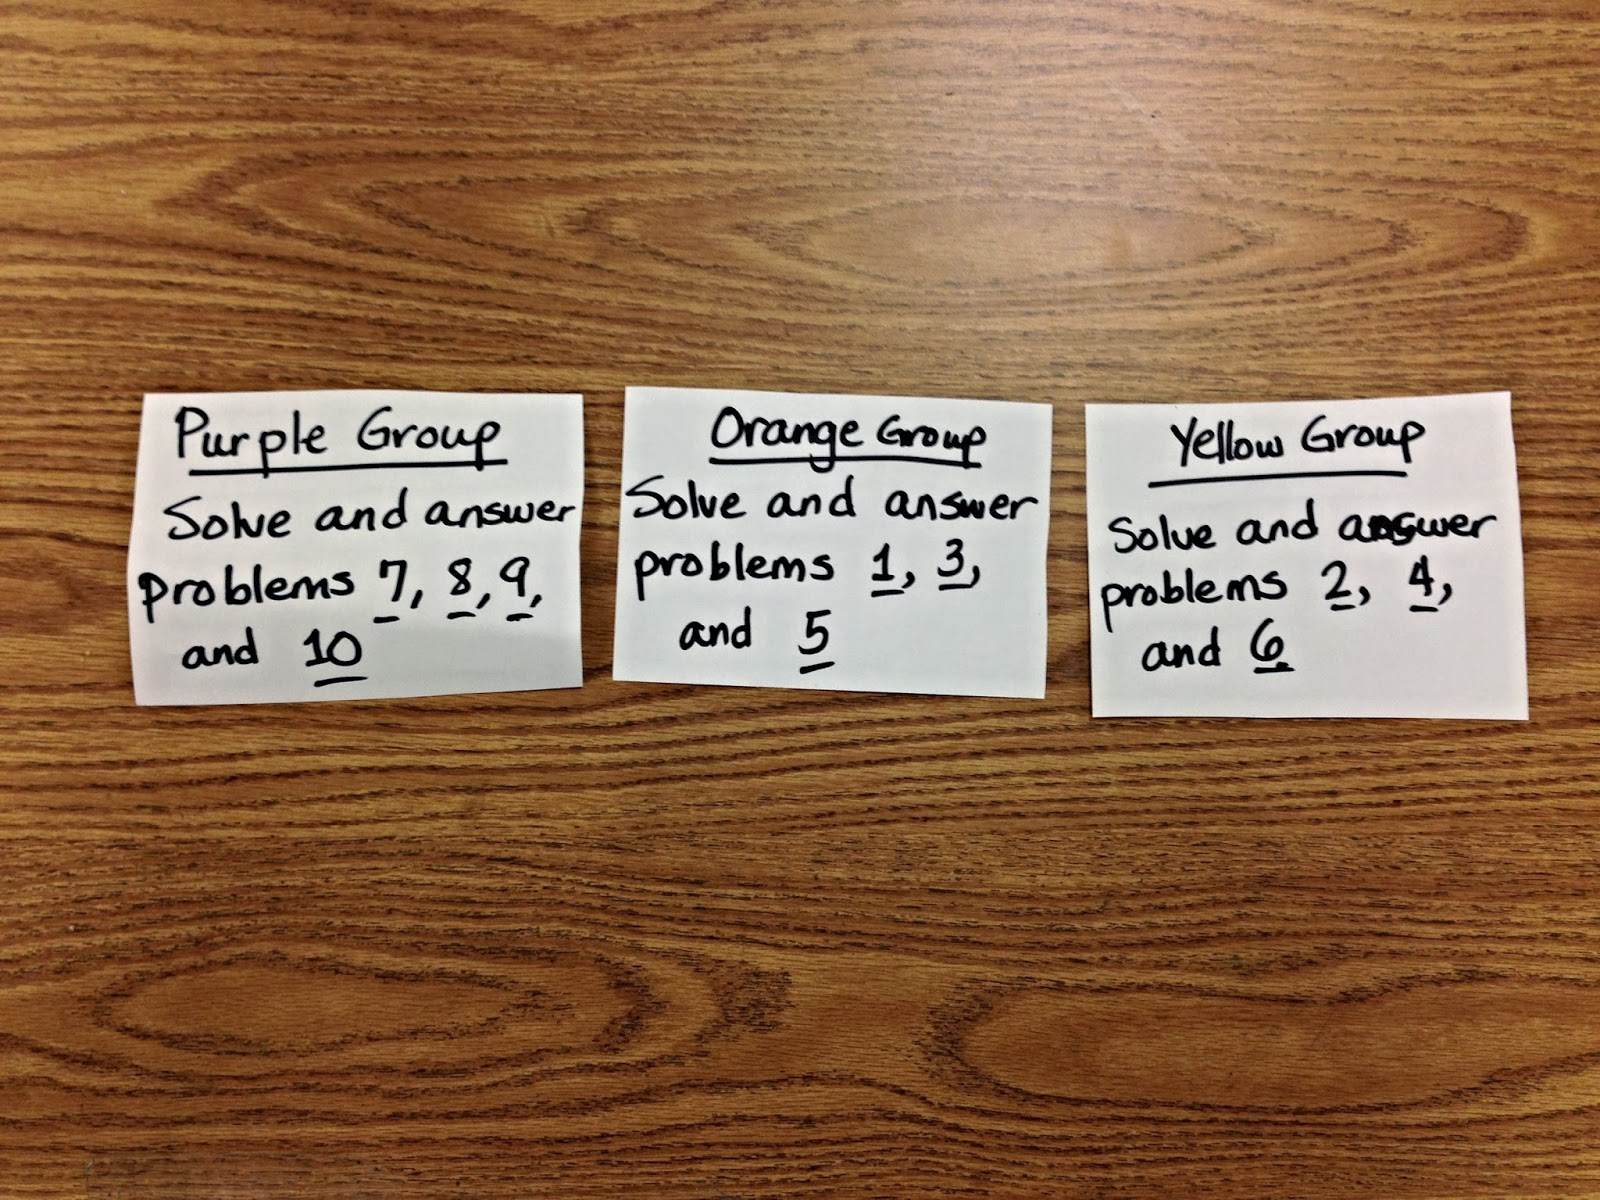 Purple Group
Solve and answer
problems 7, 8, 9,
and 10
Orange Group
Solve and answer
problems 1, 3,
and 5
Yellow Group
Solve and answer
problems 2, 4,
and 6